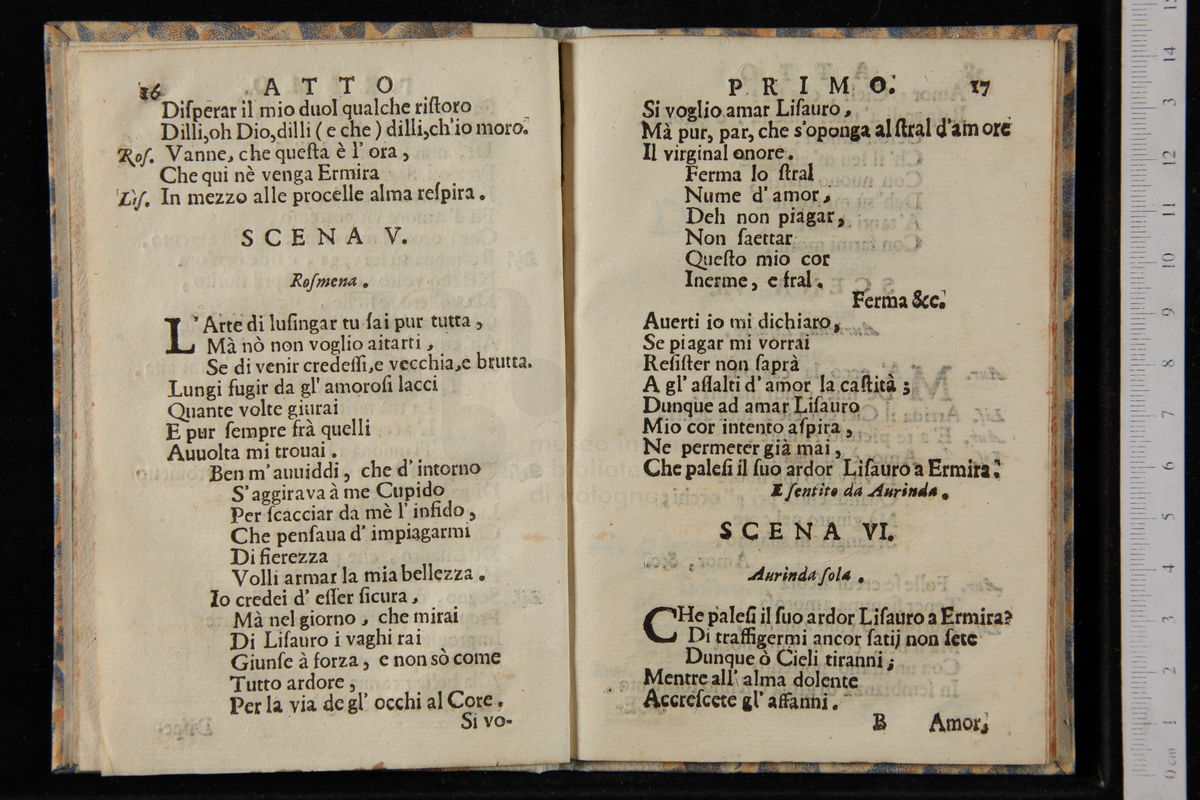 16 ATTO
Diſperar il mio duol qualche riſtoro
Dilli, oh Dio, dilli ( e che ) dilli, ch'io moro.
Roſ. Vanne, che queſta è l' ora ,
Che qui nè venga Ermira
Liſ. In mezzo alle procelle alma reſpira .
SCENA V.
Roſmena .
L'Arte di luſingar tu ſai pur tutta ,
Mà nò non voglio aitarti ,
Se di venir credeſſi, e vecchia, e brutta.
Lungi fugir da gl' amoroſi lacci
Quante volte giurai
E pur ſempre frà quelli
Auuolta mi trouai .
Ben m' auuiddi , che d' intorno
S' aggirava à me Cupido
Per ſcacciar da mè l' infido ,
Che penſaua d' impiagarmi
Di fierezza
Volli armar la mia bellezza .
Io credei d' eſſer ſicura ,
Mà nel giorno , che mirai
Di Liſauro i vaghi rai
Giunſe à forza , e non sò come
Tutto ardore ,
Per la via de gl' occhi al Core .
Si vo-
PRIMO. 17
Si voglio amar Liſauro ,
Mà pur, par, che s'oponga al ſtral d'amore
Il virginal onore .
Ferma lo ſtral
Nume d' amor ,
Deh non piagar ,
Non ſaettar
Queſto mio cor
Inerme , e fral .
Ferma &c.
Auerti io mi dichiaro ,
Se piagar mi vorrai
Reſiſter non ſaprà
A gl' aſſalti d' amor la caſtità ;
Dunque ad amar Liſauro
Mio cor intento aſpira ,
Ne permeter già mai ,
Che paleſi il ſuo ardor Liſauro a Ermira.
E ſentito da Aurinda .
SCENA VI.
Aurinda ſola .
CHe paleſi il ſuo ardor Liſauro a Ermira?
Di traffigermi ancor ſatij non ſete
Dunque ò Cieli tiranni ;
Mentre all' alma dolente
Accreſcete gl' affanni .
B Amor,